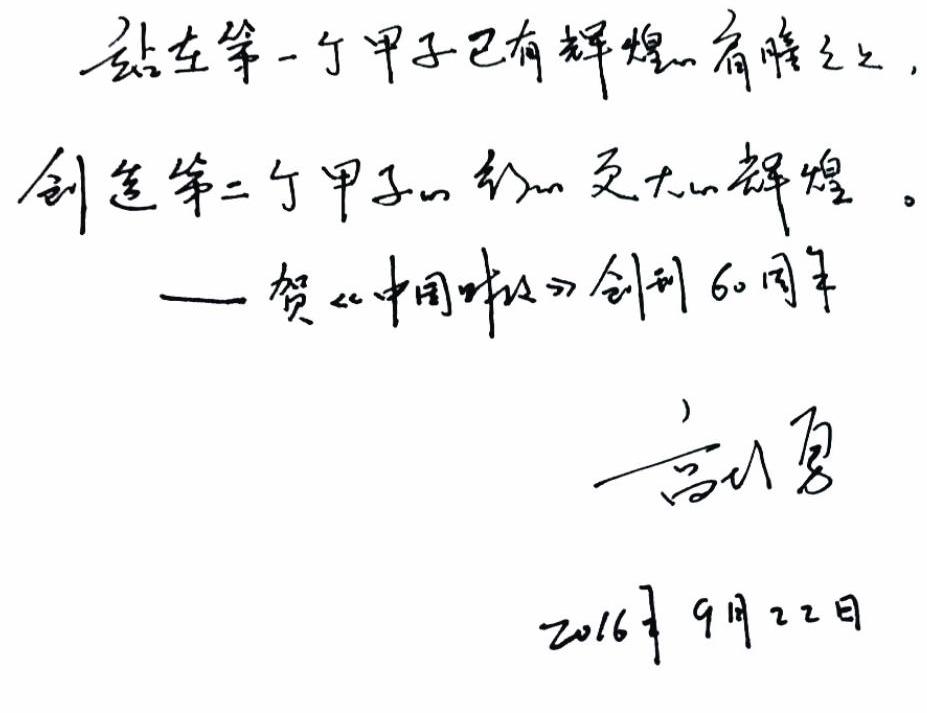 站在第一个甲子已有辉煌的肩膀之上，
创造第二个甲子的新的更大的辉煌。
——贺《中国财政》创刊60周年
高培勇
2016年9月22日